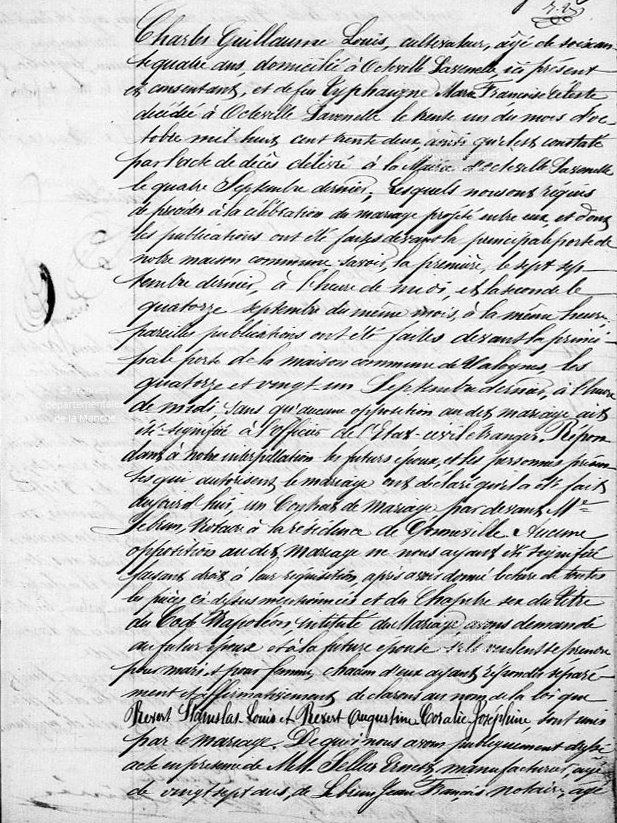 Charles Guillaume Louis, cultivateur, âgé de soixan-
te quatre ans, domicilié à Octeville Lavenelle, ici présent
et consentant, et de feu Typhaigne Marie Françoise Céleste
décédée à Octeville Lavenelle le trente un du mois d'oc-
tobre mil huit cent trente deux, ainsi qu'il est constaté
par l'acte de décès délivré à la Mairie d'Octeville Lavenelle
le quatre Septembre dernier, Lesquels nous ont requis
de procéder à la célébration du mariage projeté entre eux, et dont
les publications ont été faites devant la principale porte de
notre maison commune savoir, la première, le sept sep-
tembre dernier, à l'heure de midi, et la seconde le
quatorze septembre du même mois, à la même heure,
pareilles publications ont été faites devant la princi-
pale porte de la maison commune de Valognes, les
quatorze et vingt un Septembre dernier, à l'heure
de midi, sans qu'aucune opposition audit mariage ait
été signifiée à l'officier de l'Etat-civil étranger. Répon-
dant à notre interpellation les futurs époux, et les personnes présen-
tes qui autorisent le mariage ont déclaré qu'il a été fait
aujourd'hui, un Contrat de Mariage par devant Me
Lebrun, Notaire à la résidence de Gonneville. Aucune
opposition audit Mariage ne nous ayant été signifiée
faisant droit à leur réquisition, après avoir donné lecture de toutes
les pièces ci-dessus mentionnées et du Chapitre six du titre
du Code Napoléon intitulé du Mariage avons demandé
au futur époux et à la future épouse s'ils veulent se prendre
pour mari et pour femme, chacun d'eux ayant répondu séparé-
ment et affirmativement, déclarons au nom de la loi que
Revert Stanislas Louis et Revert Augustine Coralie Joséphine, sont unis
par le mariage. De quoi nous avons publiquement dressé
acte en présence de MM. Sellier Ernest, manufacturier, âgé
de vingt sept ans, de Lebrun Jean François notaire, âgé
départementales
de la Manche
départementales